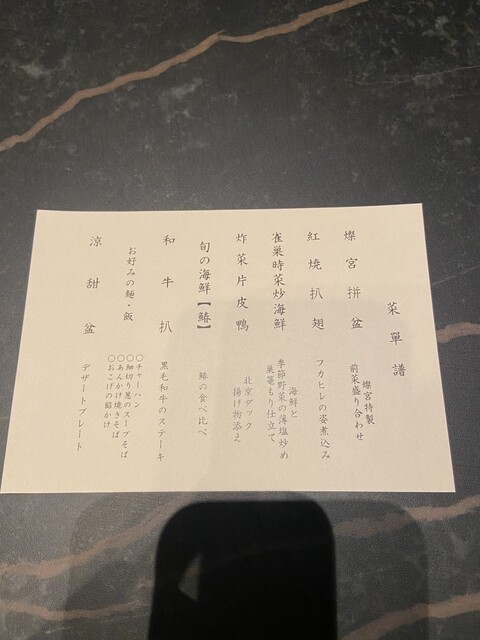 菜單譜
燦宮拼盆
燦宮特製
前菜盛り合わせ
紅燒扒翅
フカヒレの姿煮込み
雀巣時菜炒海鮮
海鮮と
季節野菜の薄塩炒め
巣篭もり仕立て
炸菜片皮鴨
北京ダック
揚げ物添え
旬の海鮮【鰆】
鰆の食べ比べ
和牛扒
黒毛和牛のステーキ
お好みの麺・飯
〇チャーハン
〇細切り葱のスープそば
〇あんかけ焼きそば
〇おこげの餡かけ
涼甜盆
デザートプレート